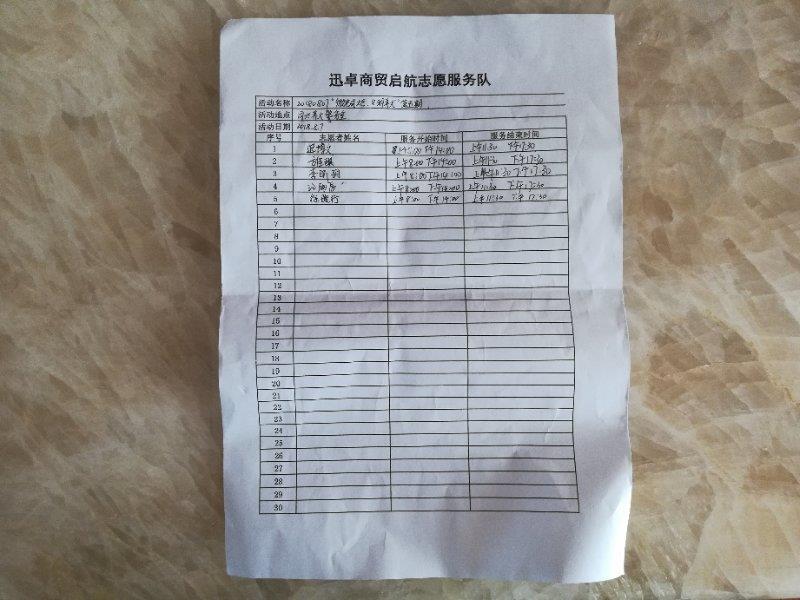 迅卓商贸启航志愿服务队
活动名称 20180807
活动地点
活动日期 2018.8.7
序号 志愿者姓名 服务开始时间 服务结束时间
1 下午14:00 上午11:30 下午17:30
2 上午8:00 下午14:00 上午11:30 下午17:30
3 上午8:00 下午14:00 上午11:30 下午17:30
4 上午8:00 下午14:00 上午11:30 下午17:30
5 上午8:00 下午14:00 上午11:30 下午17:30
6
7
8
9
10
11
12
13
14
15
16
17
18
19
20
21
22
23
24
25
26
27
28
29
30